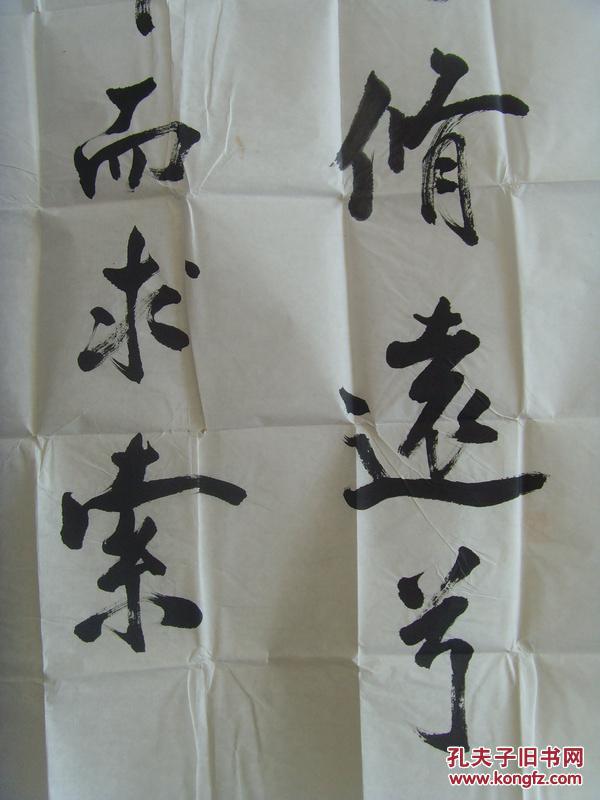 脩遠兮
而求索
孔夫子旧书网
www.kongfz.com